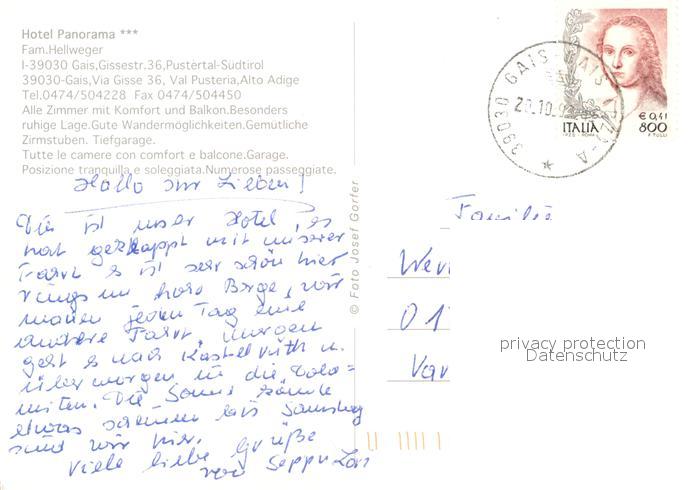 Hotel Panorama ***
Fam.Hellweger
I-39030 Gais,Gissestr.36,Pustertal-Südtirol
39030-Gais,Via Gisse 36, Val Pusteria,Alto Adige
Tel.0474/504228 Fax 0474/504450
Alle Zimmer mit Komfort und Balkon.Besonders
ruhige Lage.Gute Wandermöglichkeiten.Gemütliche
Zirmstuben. Tiefgarage.
Tutte le camere con comfort e balcone.Garage.
Posizione tranquilla e soleggiata.Numerose passeggiate.
Hallo ihr Lieben!
Die ist unser Hotel, es
hat geklappt mit unserer
Fahrt es ist sehr schön hier
rings um hohe Berge, wir
machen jeden Tag eine
andere Fahrt, morgen
geht es nach Kastelruth u.
übermorgen in die Dolo=
miten. Die Sonne könnte
etwas scheinen bis Samstag
sind wir hier.
Viele liebe Grüße
von Sepp u
© Foto Josef Gorfer
39030 GAIS
20.10.
ITALIA
€ 0,41
800
Familie
Wer
01
Var
privacy protection
Datenschutz